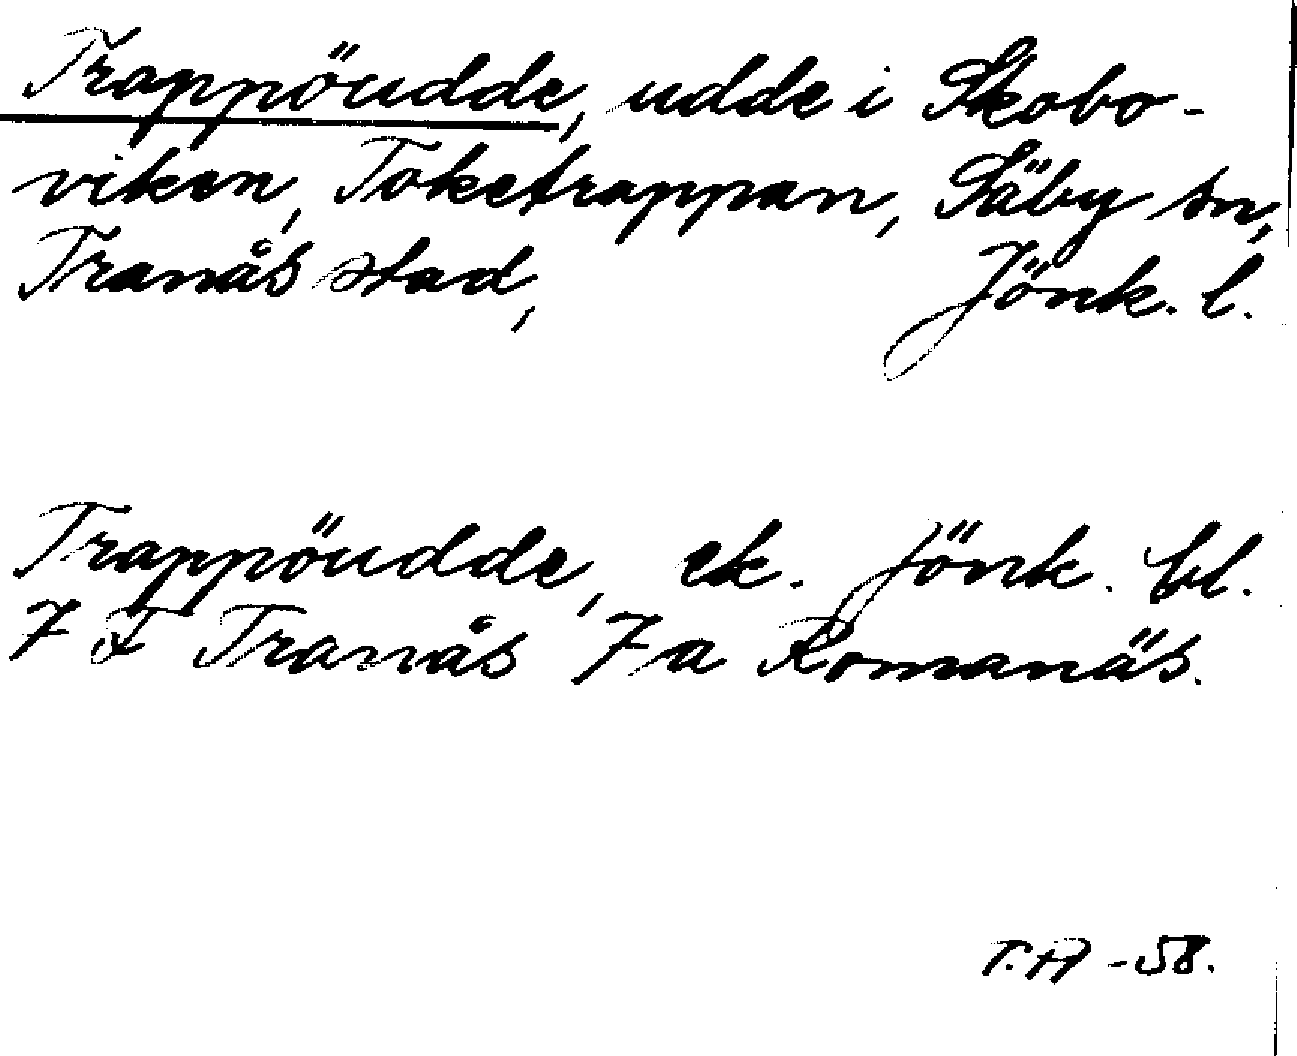 Trappöudde, udde i Skobo-
viken, Toketrappan, Säby sn,
Tranås stad, Jönk. l.
Trappöudde, ek. Jönk. bl.
7 F Tranås 7 a Romanäs.
T.A -58.